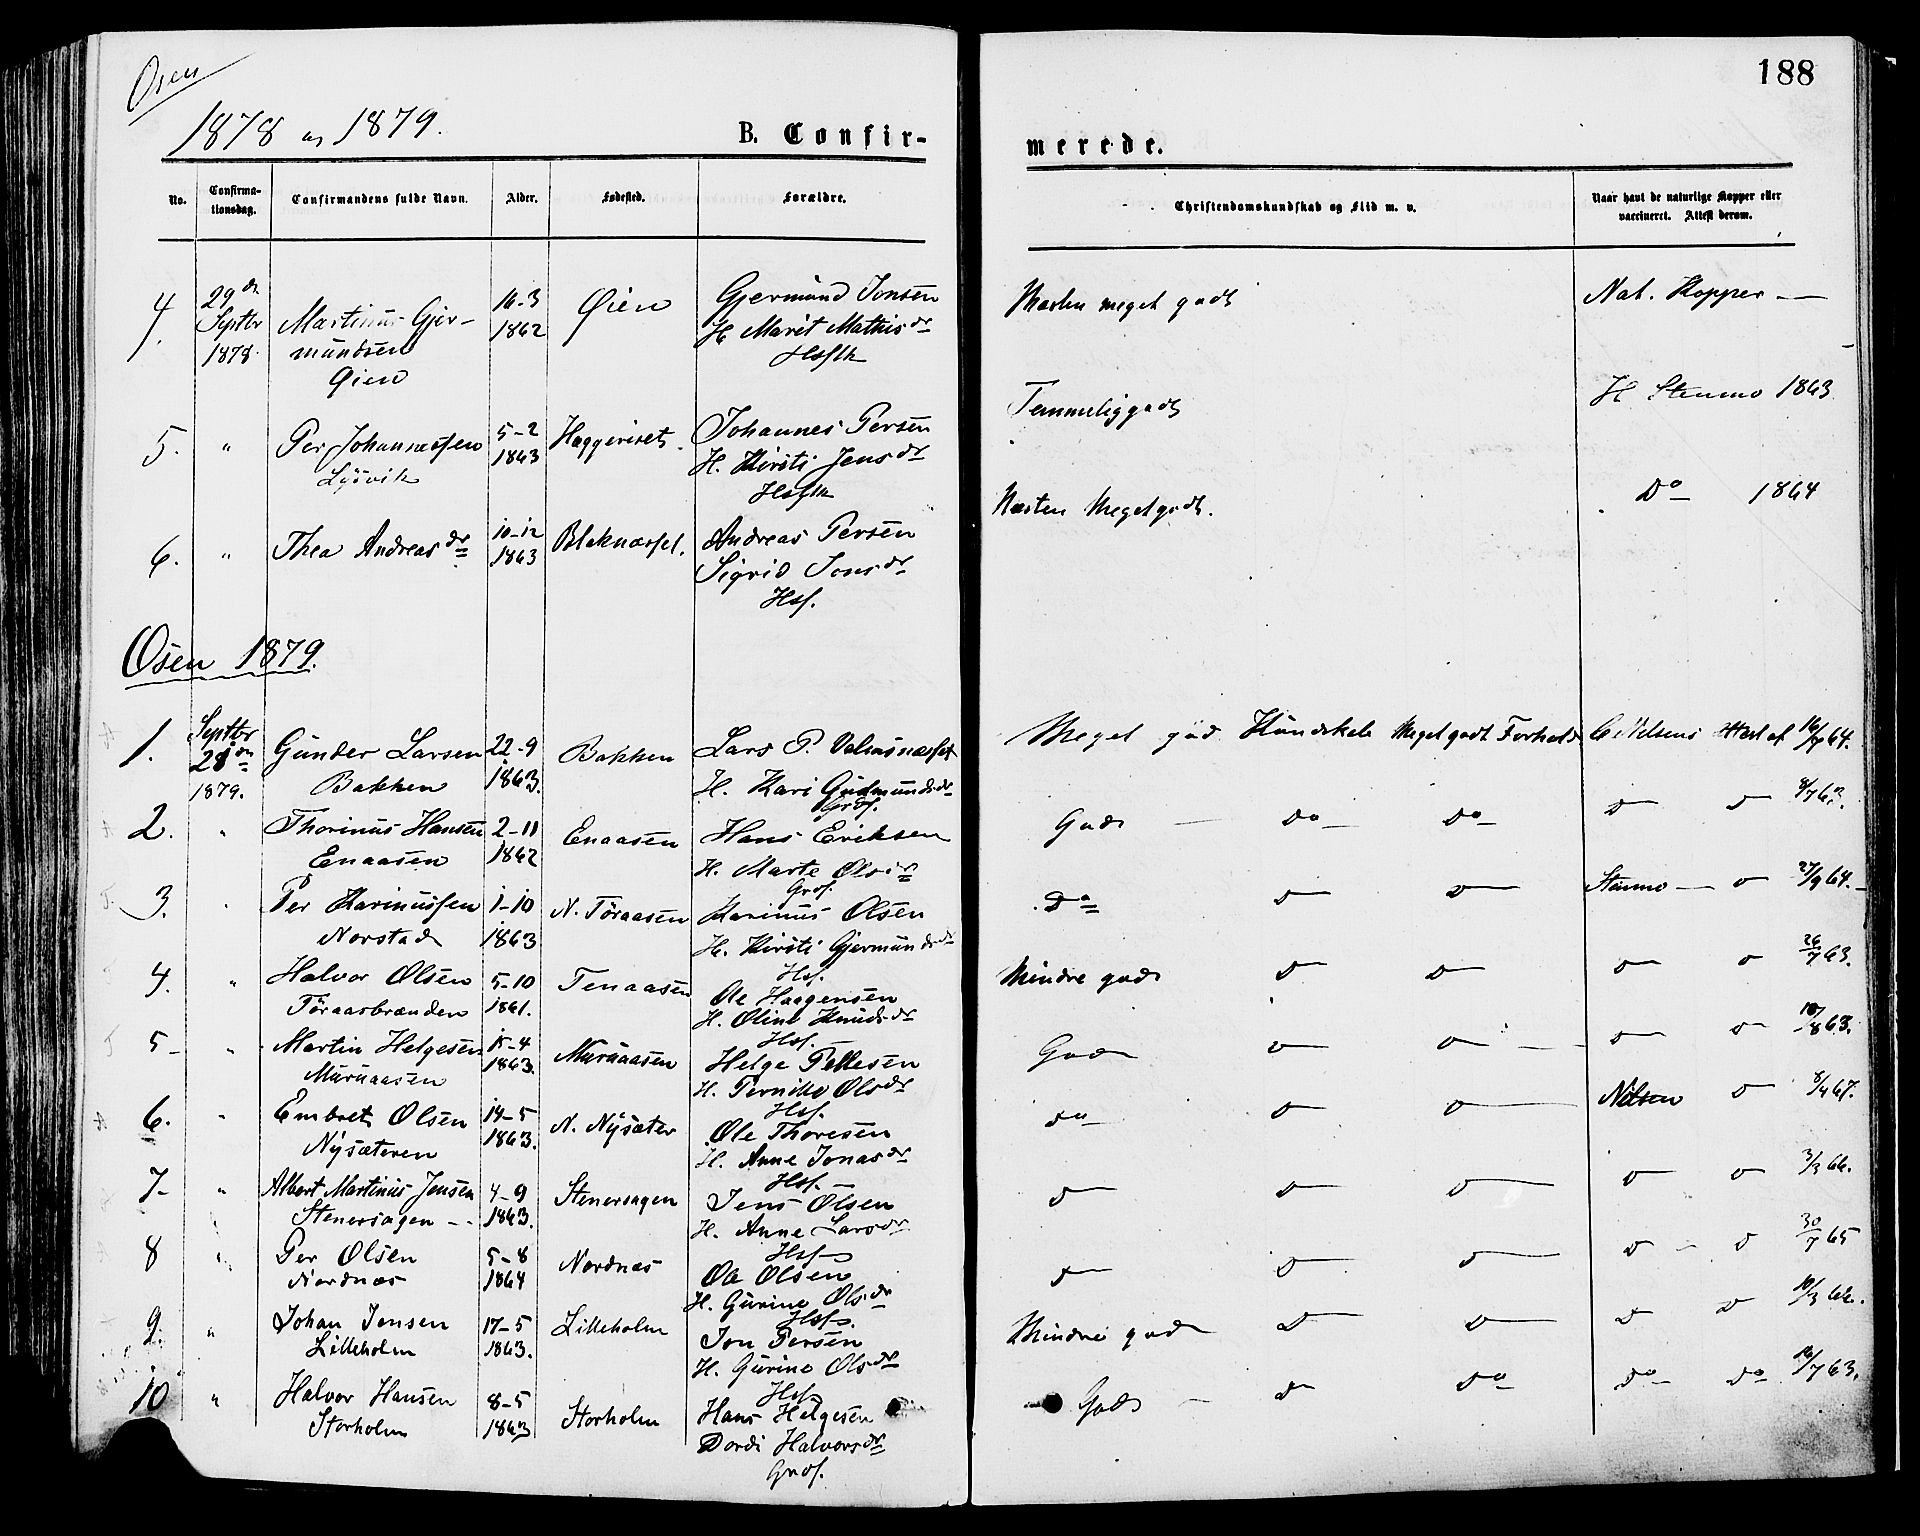 Osen
188
1878 og 1879.
B. Confirmerede.
No. Confirmationsdag. Confirmandens fulde Navn. Alder. Fødested. Forældre. Christendomskundskab og Flid m. v. Naar havt de naturlige Kopper eller vaccineret. Attest derom.
4. 29de Septbr 1878. Martinus Gjermundsen Øien 16-3 1862 Øien Gjermund Jonsen H. Marit Mathisdr Hsflk Næsten meget godt Nat. Kopper —
5. " Per Johannessen Lysvik 5-2 1863 Haggeriset Johannes Persen H. Kirsti Jensdr Hsflk Temmelig godt H Stenmo 1863
6. " Thea Andreasdr 10-12 1863 Blaknæsset. Andreas Persen Sigrid Jonsdr Hsf. Næsten Meget godt. Do 1864
Osen 1879.
1. Septbr 28de 1879. Gunder Larsen Bakken 22-9 1863. Bakken Lars P. Valmsnæsset H. Kari Gudmundsdr Grdf. Meget god Kundskab Meget godt Forhold C Nilsens Attest af 16/7 64.
2. " Thorinus Hansen Enaasen 2-11 1862 Enaasen Hans Eriksen H. Marte Olsdr Grdf. God — Do Do D D 8/7 63.
3. " Per Karinussen Norstad 1-10 1863 N. Toraasen Karinus Olsen H. Kirsti Gjermundsdr Hsf. Do D D Stenmo — D 27/9 64.
4. " Halvor Olsen Toraasbrænden 5-10 1861. Tenaasen Ole Haagensen H. Oline Knudsdr Hsf. Mindre god D D D D 26/7 63.
5- " Martin Helgesen Muruaasen 15-4 1863. Muruaasen Helge Pellesen H. Pernille Olsdr Hsf. God D D D D 18/8 63.
6. " Embret Olsen Nysæteren 14-5 1863. N. Nysæter Ole Thoresen H. Anne Jonasdr Hsf. Do D D Nilsen D 8/4 67.
7- " Albert Martinius Jensen Stenersagen 4-9 1863. Stenersagen Jens Olsen H. Anne Larsdr Hsf D D D D D 3/3 66.
8 " Per Olsen Nordnæs 5-8 1864 Nordnæs Ole Olsen H. Gurine Olsdr Hsf. D D D D D 30/7 65
9. " Johan Jonsen Lilleholm 17-5 1863. Lilleholm Jon Persen H. Gurine Olsdr Hsf Mindre god D D D D 10/3 66.
10 " Halvor Hansen Storholm 8-5 1863 Storholm Hans Helgesen Dordi Halvorsdr Grdf. God — D Do Do Do 16/7 63.